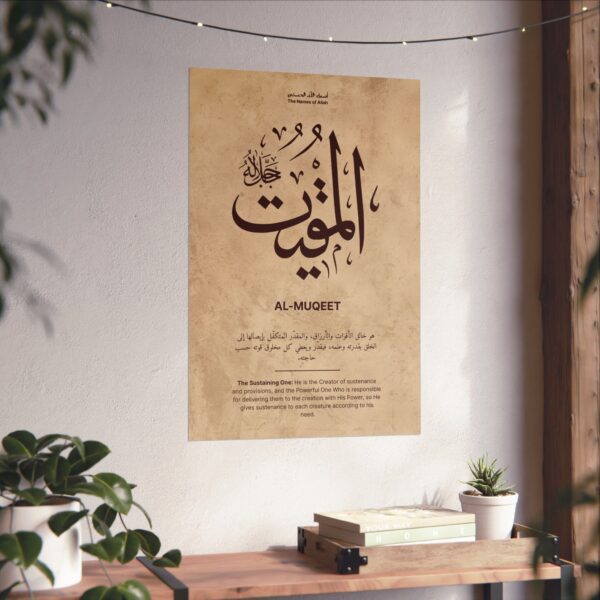 أسماء الله الحسنى
The Names of Allah
المقيت
جل جلاله
AL-MUQEET
هو خالق الأقوات والأرزاق، والمقدّر المتكفّل بإيصالها إلى
الخلق بقدرته وعلمه، فيقدّر ويعطي كل مخلوق قوته حسب
حاجته.
The Sustaining One: He is the Creator of sustenance
and provisions, and the Powerful One Who is responsible
for delivering them to the creation with His Power, so He
gives sustenance to each creature according to his
need.
HOME